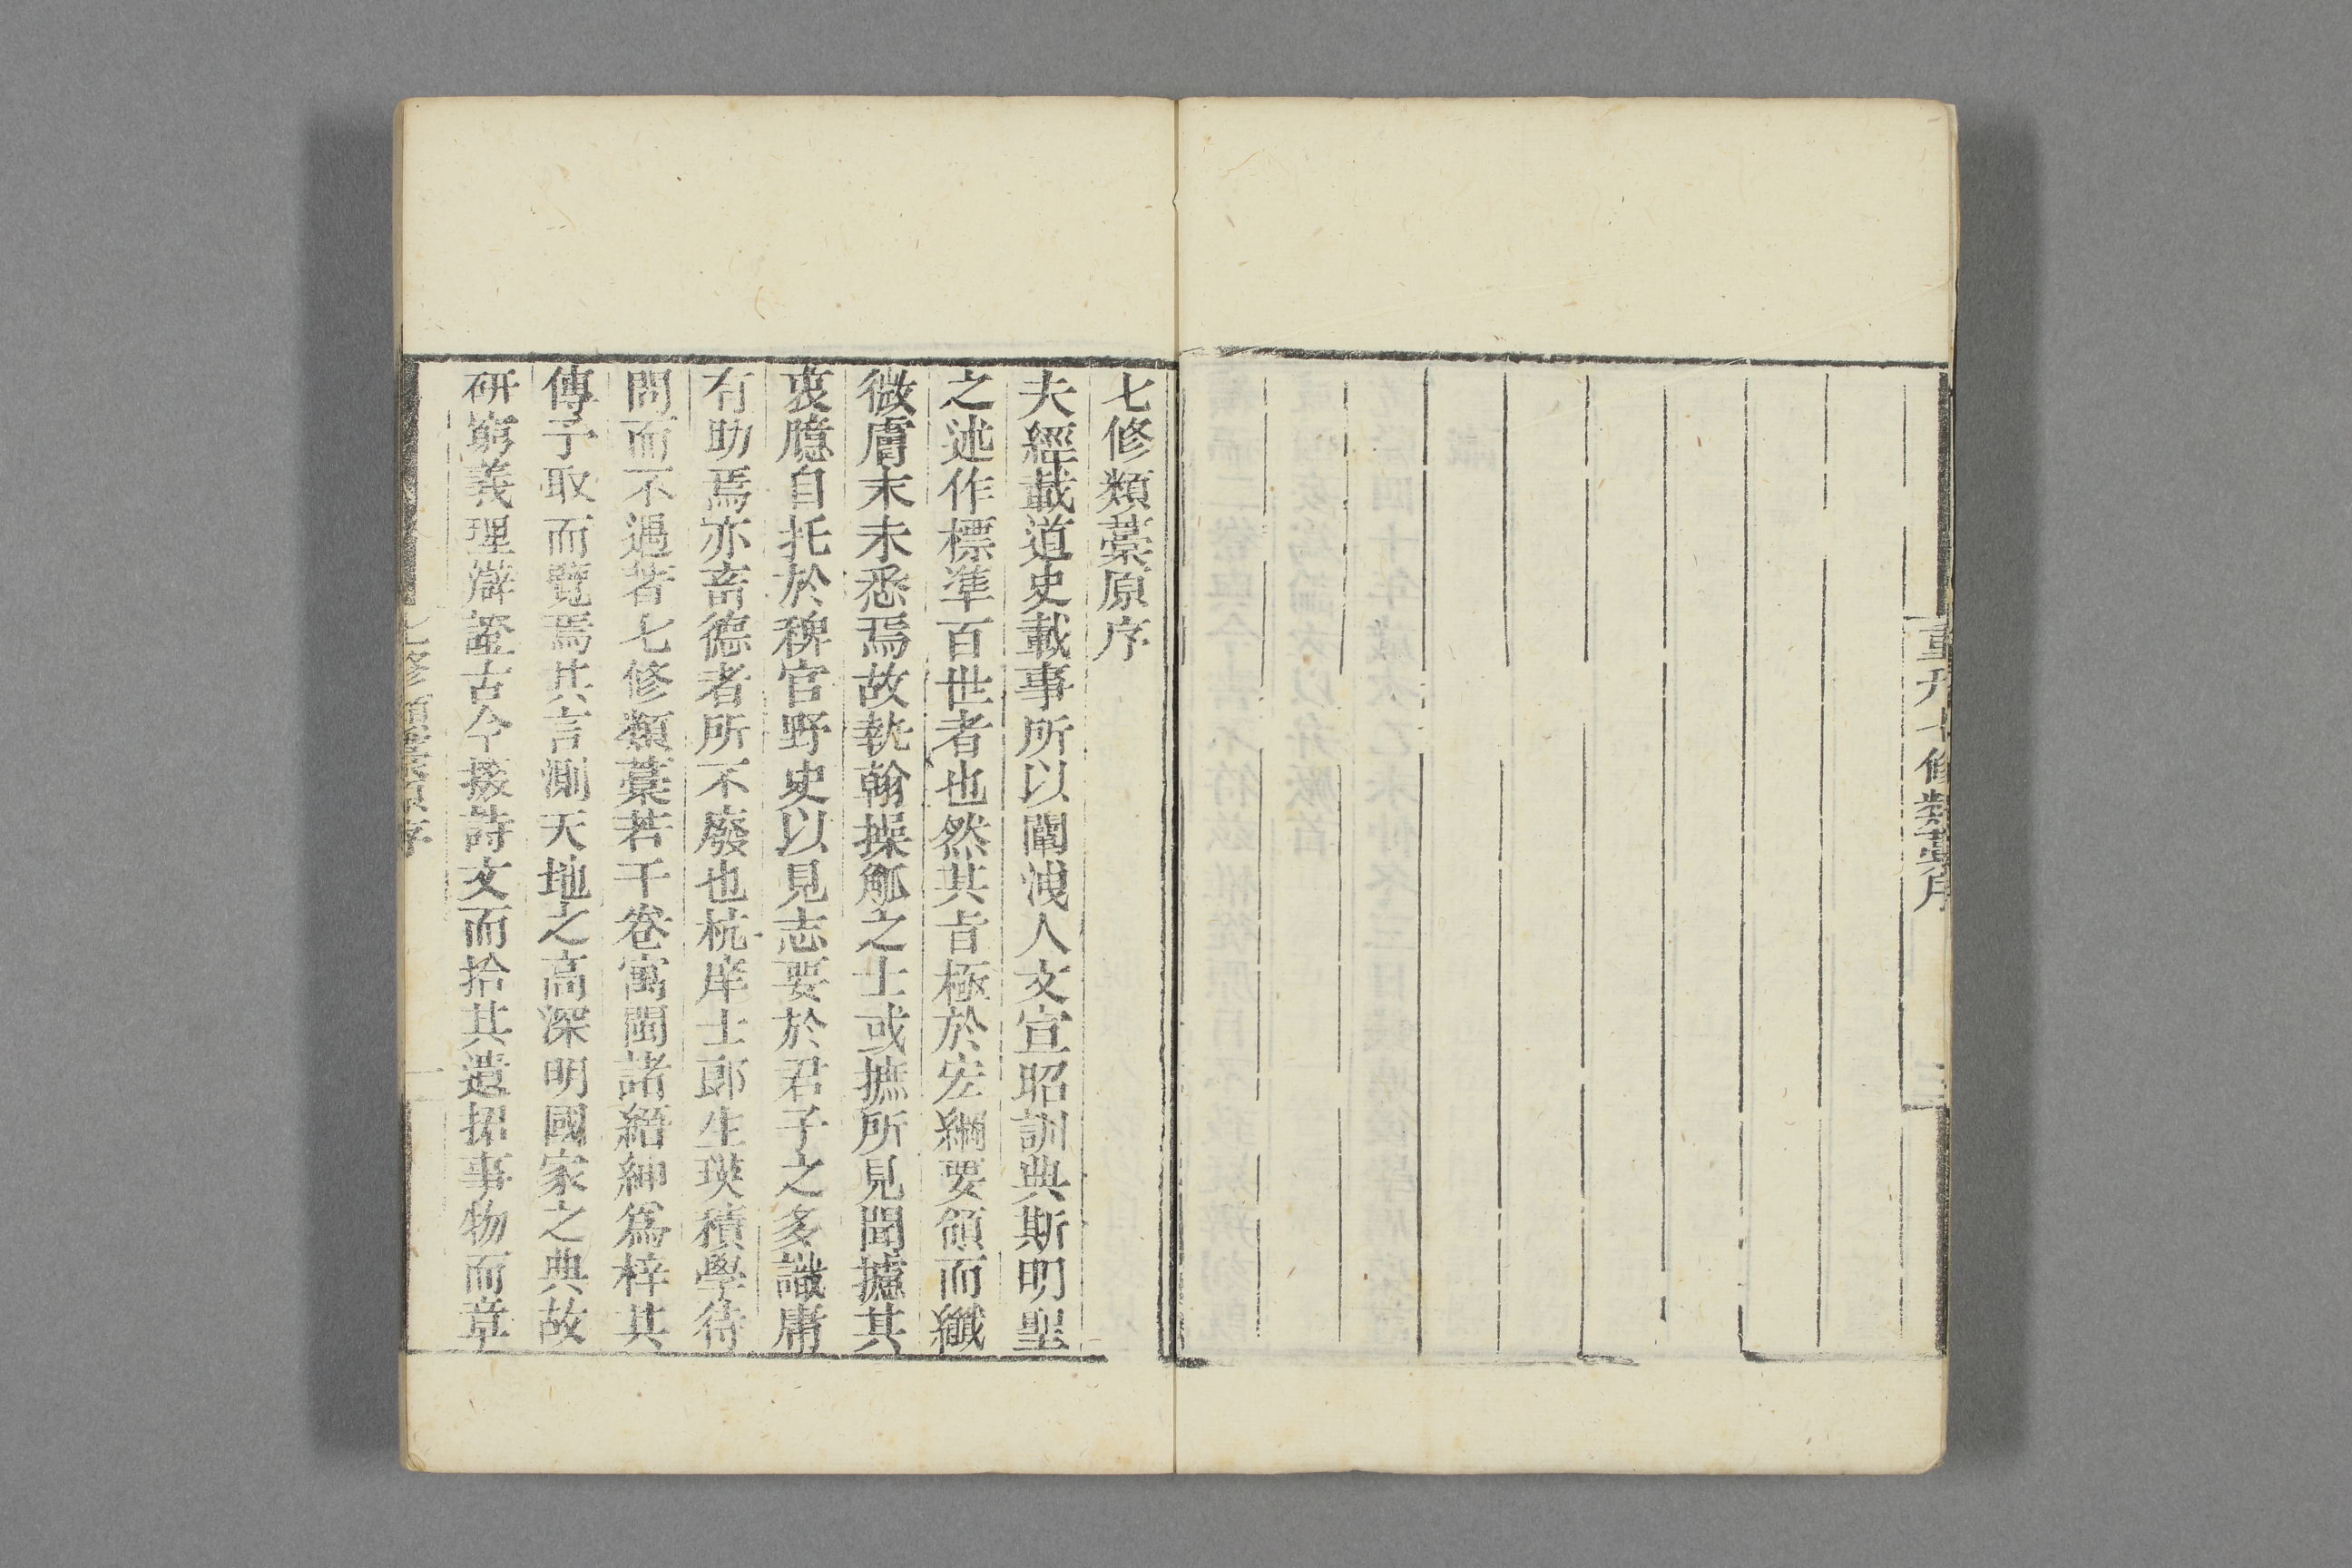 重刋七修類藁序
三
七修類藁原序
夫經載道史載事所以闡洩人文宣昭訓典斯明聖
之述作標準百世者也然其旨極於宏綱要領而纖
微膚末未悉焉故執翰操觚之士或摭所見聞攄其
衷臆自托於稗官野史以見志要於君子之多識庸
有助焉亦畜德者所不廢也杭庠士郎生瑛積學待
問而不遇著七修類藁若干卷寓閩諸縉紳爲梓其
傳予取而覽焉其言測天地之高深明國家之典故
研窮義理辯證古今掇詩文而拾其遺捃事物而章
七修類藁原序
一